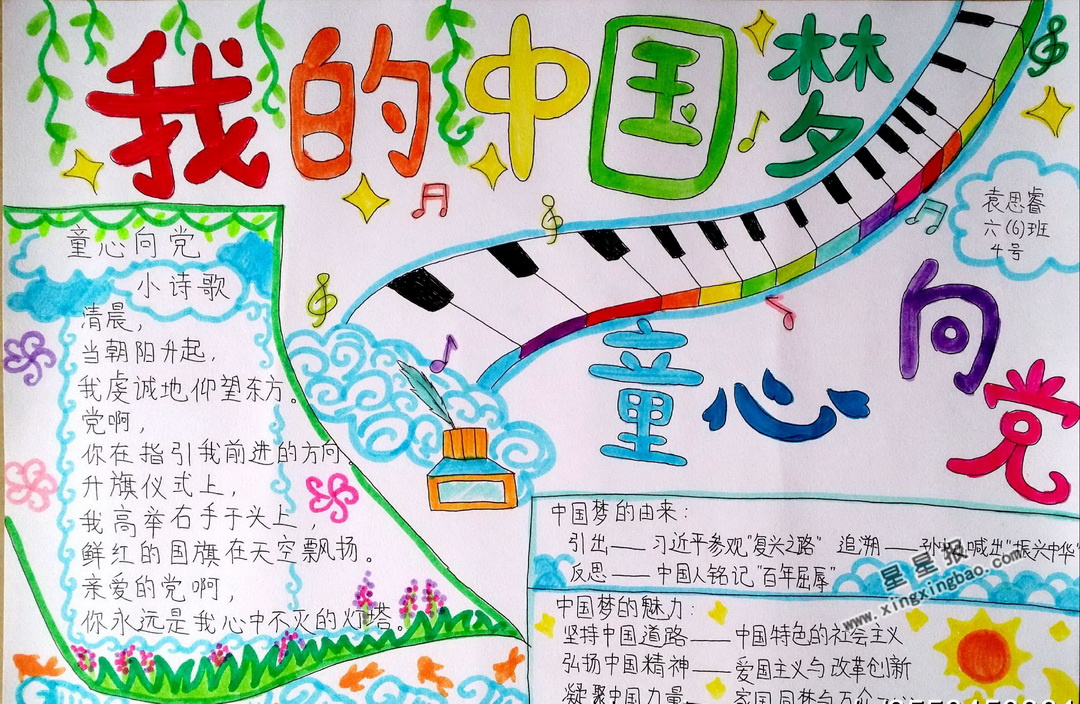 我的中国梦
袁思睿
六(6)班
4号
童心向党
童心向党
小诗歌
清晨，
当朝阳升起，
我虔诚地仰望东方。
党啊，
你在指引我前进的方向。
升旗仪式上，
我高举右手于头上，
鲜红的国旗在天空飘扬。
亲爱的党啊，
你永远是我心中不灭的灯塔。
中国梦的由来：
引出——习近平参观"复兴之路" 追溯——孙 喊出"振兴中华"
反思——中国人铭记"百年屈辱"
中国梦的魅力：
坚持中国道路——中国特色的社会主义
弘扬中国精神——爱国主义与改革创新
凝聚中国力量——家国同梦与万众
星星报
www.xingxingbao.com